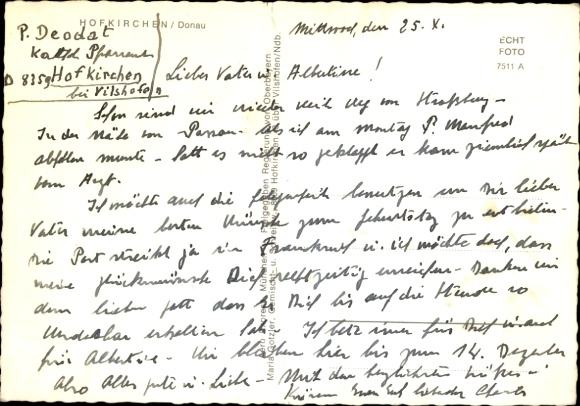 HOFKIRCHEN / Donau
P. Deodat
Kath. Pfarramt
D 8359 Hofkirchen
bei Vilshofen
Mittwoch, den 25. X.
ECHT
FOTO
7511 A
Lieber Vater u. Albertine!
Schon sind wir wieder weit weg von Straßburg -
In der Nähe von Passau - als ich am Montag P. Manfred
abholen musste - hatt es nicht so geklappt er kam ziemlich spät
vom Arzt.
Ich möchte auch die Gelegenheit benutzen um Dir lieber
Vater meine besten Wünsche zum Geburtstag zu entbieten -
Die Post streikt ja in Frankreich u. ich möchte doch, dass
meine Glückwünsche Dich rechtzeitig erreichen - Danken wir
dem lieben Gott dass Er Dich bis auf die Stunde so
wunderbar erhalten hat - Ich bete immer für Dich u. auch
für Albertine - Wir bleiben hier bis zum 14. Dezember
Also Alles gute u. Liebe - Mit den herzlichsten Grüßen u.
Küssen Euer Euch liebender Charles